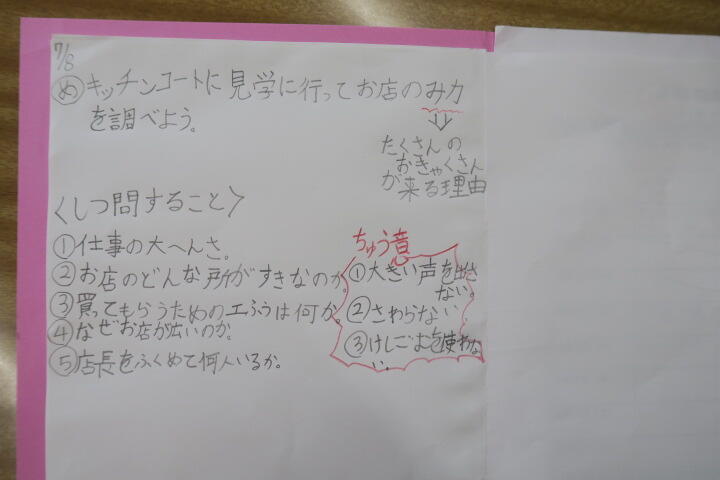 7/8
め キッチンコートに見学に行ってお店のみ力
を調べよう。
⇓
たくさんの
おきゃくさん
が来る理由
〈しつ問すること〉
①仕事の大へんさ。
②お店のどんな所がすきなのか。
③買ってもらうためのエふうは何か。
④なぜお店が広いのか。
⑤店長をふくめて何人いるか。
ちゅう意
①大きい声を出さ
ない。
②さわらない
③けしごむを使わな
い。